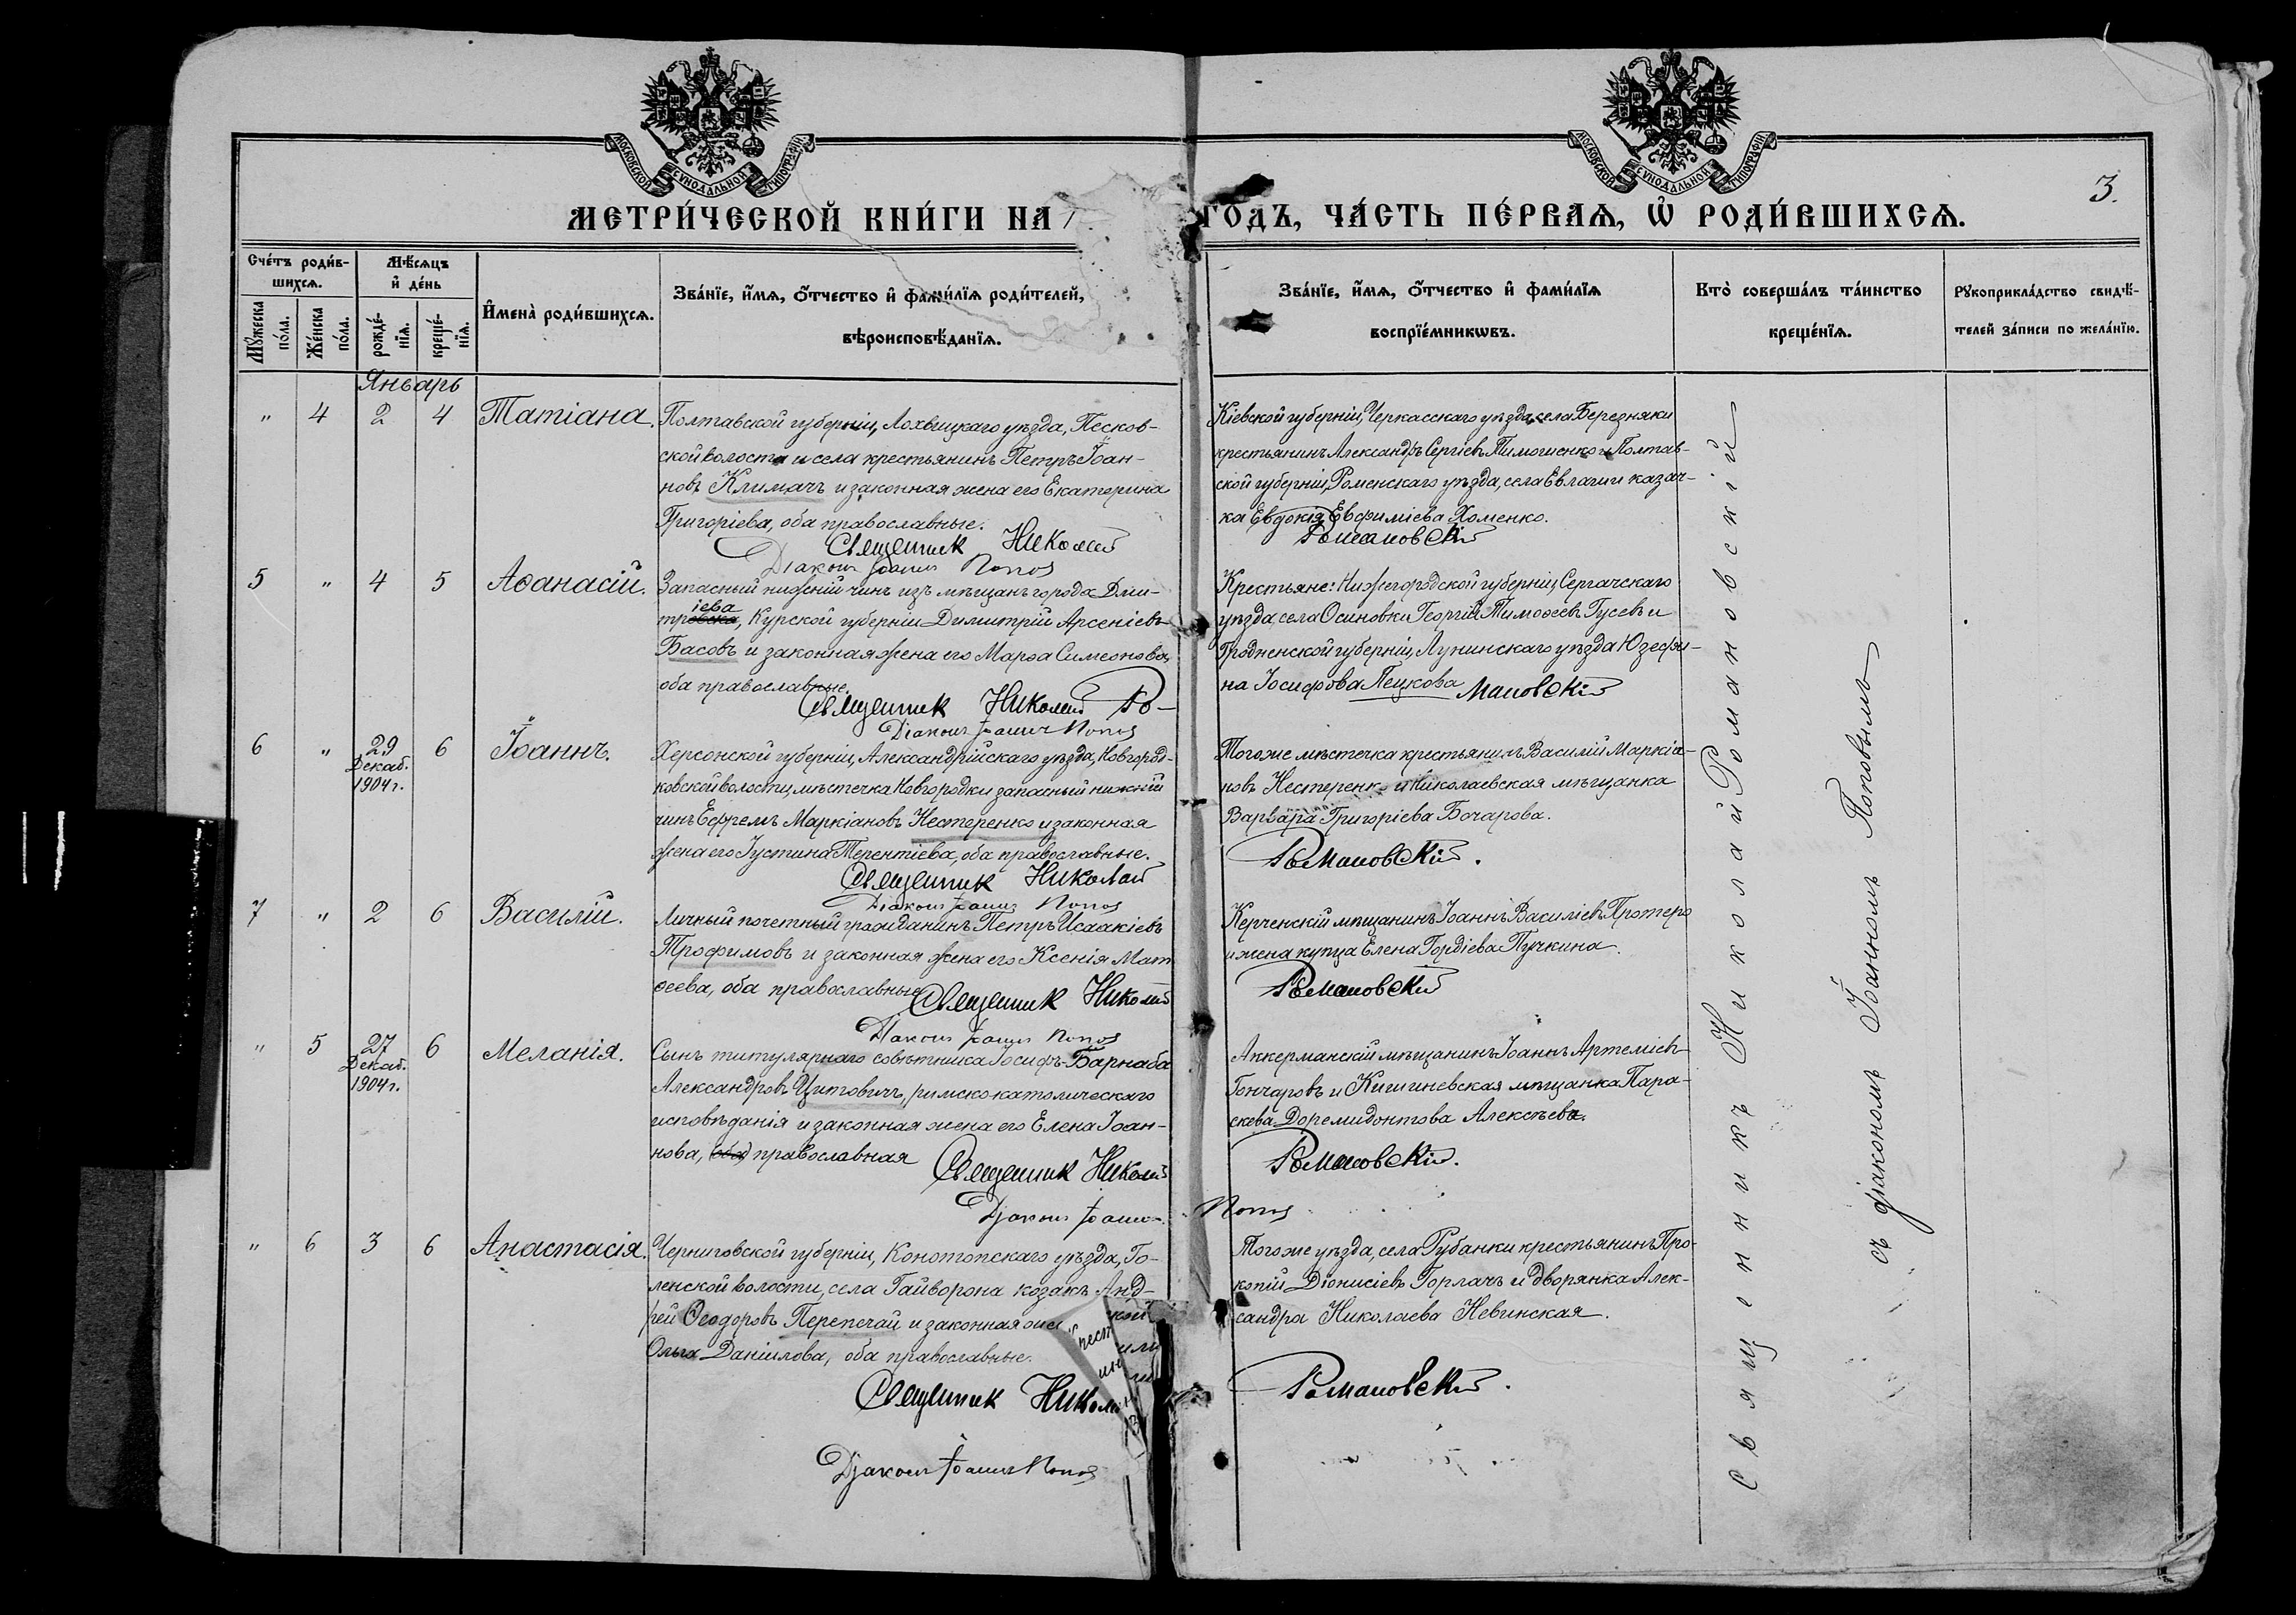 МОСКОВСКОЙ СѴНОДАЛЬНОЙ ТИПОГРАФІИ.
МОСКОВСКОЙ СѴНОДАЛЬНОЙ ТИПОГРАФІИ.
3.
МЕТРИ́ЧЕСКОЙ КНИ́ГИ НА 1
ГО́ДЪ, ЧА́СТЬ ПЕ́РВАѦ, Ѡ҆ РОДИ́ВШИХСѦ.
Сче́тъ роди́в-
шихсѧ.
Мꙋ́жеска по́ла.
Же́нска по́ла.
Мѣ́сѧцъ
и҆ де́нь
рожде́-
нїѧ.
креще́-
нїѧ.
И҆мена̀ роди́вшихсѧ.
Зва́нїе, и҆́мѧ, ѻ҆́тчество и҆ фами́лїѧ роди́телей,
вѣроисповѣ́данїѧ.
Зва́нїе, и҆́мѧ, ѻ҆́тчество и҆ фами́лїѧ
воспрїе́мникѡвъ.
Кто̀ соверша́лъ та́инство
креще́нїѧ.
Рꙋкоприкла́дство свидѣ́-
телей за́писи по жела́нїю.
Январь
" 4 2 4 Татіана.
Полтавской губерніи, Лохвицкаго уѣзда, Песков-
ской волости и села крестьянинъ Петръ Іоан-
новъ Климачъ и законная жена его Екатерина
Григоріева, оба православные.
Священник Николай
Діаконъ Іоаннъ Попов
Кіевской губерніи, Черкасскаго уѣзда, села Березняки
крестьянинъ Александръ Сергіевъ Тимошенко и Полтав-
ской губерніи, Роменскаго уѣзда, села Евлаши казач-
ка Евдокія Евфиміева Хоменко.
Романовскій
5 " 4 5 Аѳанасій.
Запасный нижній чинъ изъ мѣщанъ города Дми-
іева
тровска, Курской губерніи Димитрій Арсеніевъ
Басовъ и законная жена его Марѳа Симеонова,
оба православные.
Священник Николай Ро-
Діаконъ Іоаннъ Попов
Крестьяне: Нижегородской губерніи, Сергачскаго
уѣзда, села Осиновки Георгій Тимоѳеевъ Гусевъ и
Гродненской губерніи, Лунинскаго уѣзда Юзефи-
на Іосифова Пецкова
мановскій
6 " 29 6 Іоаннъ.
Декаб.
1904 г.
Херсонской губерніи, Александрійскаго уѣзда, Новгород-
ковской волости, мѣстечка Новгородки запасный нижній
чинъ Ефремъ Маркіановъ Нестеренко и законная
жена его Іустина Терентіева, оба православные.
Священник Николай
Діаконъ Іоаннъ Попов
Того же мѣстечка крестьянинъ Василій Маркіа-
новъ Нестеренко и Николаевская мѣщанка
Варвара Григоріева Бочарова.
Романовскій.
7 " 2 6 Василій.
Личный почетный гражданинъ Петръ Исаакіевъ
Трофимовъ и законная жена его Ксенія Мат
ѳеева, оба православные.
Священник Николай
Діаконъ Іоаннъ Попов
Керченскій мѣщанинъ Іоаннъ Василіевъ Протеро
и жена купца Елена Гордіева Пучкина.
Романовскій
" 5 27 6 Меланія.
Декаб.
1904 г.
Сынъ титулярнаго совѣтника Іосифъ-Барнаба
Александровъ Цитовичъ, римско-католическаго
исповѣданія и законная жена его Елена Іоан-
нова, (оба) православная
Священник Николай
Діаконъ Іоаннъ Попов
Аккерманскій мѣщанинъ Іоаннъ Артеміевъ
Гончаровъ и Кишиневская мѣщанка Пара-
скева Доремидонтова Алексѣева.
Романовскій.
" 6 3 6 Анастасія.
Черниговской губерніи, Конотопскаго уѣзда, Го-
ленской волости, села Гайворона козакъ Анд-
рей Ѳеодоровъ Перепечай и законная же
Ольга Даніилова, оба православные.
Священник Никола
Діаконъ Іоаннъ Попов
Того же уѣзда, села Рубанки крестьянинъ Про-
копій Діонисіевъ Горлачъ и дворянка Алек-
сандра Николаева Невинская.
Романовскій.
Священникъ Николай Романовскій
съ діакономъ Іоанномъ Поповымъ